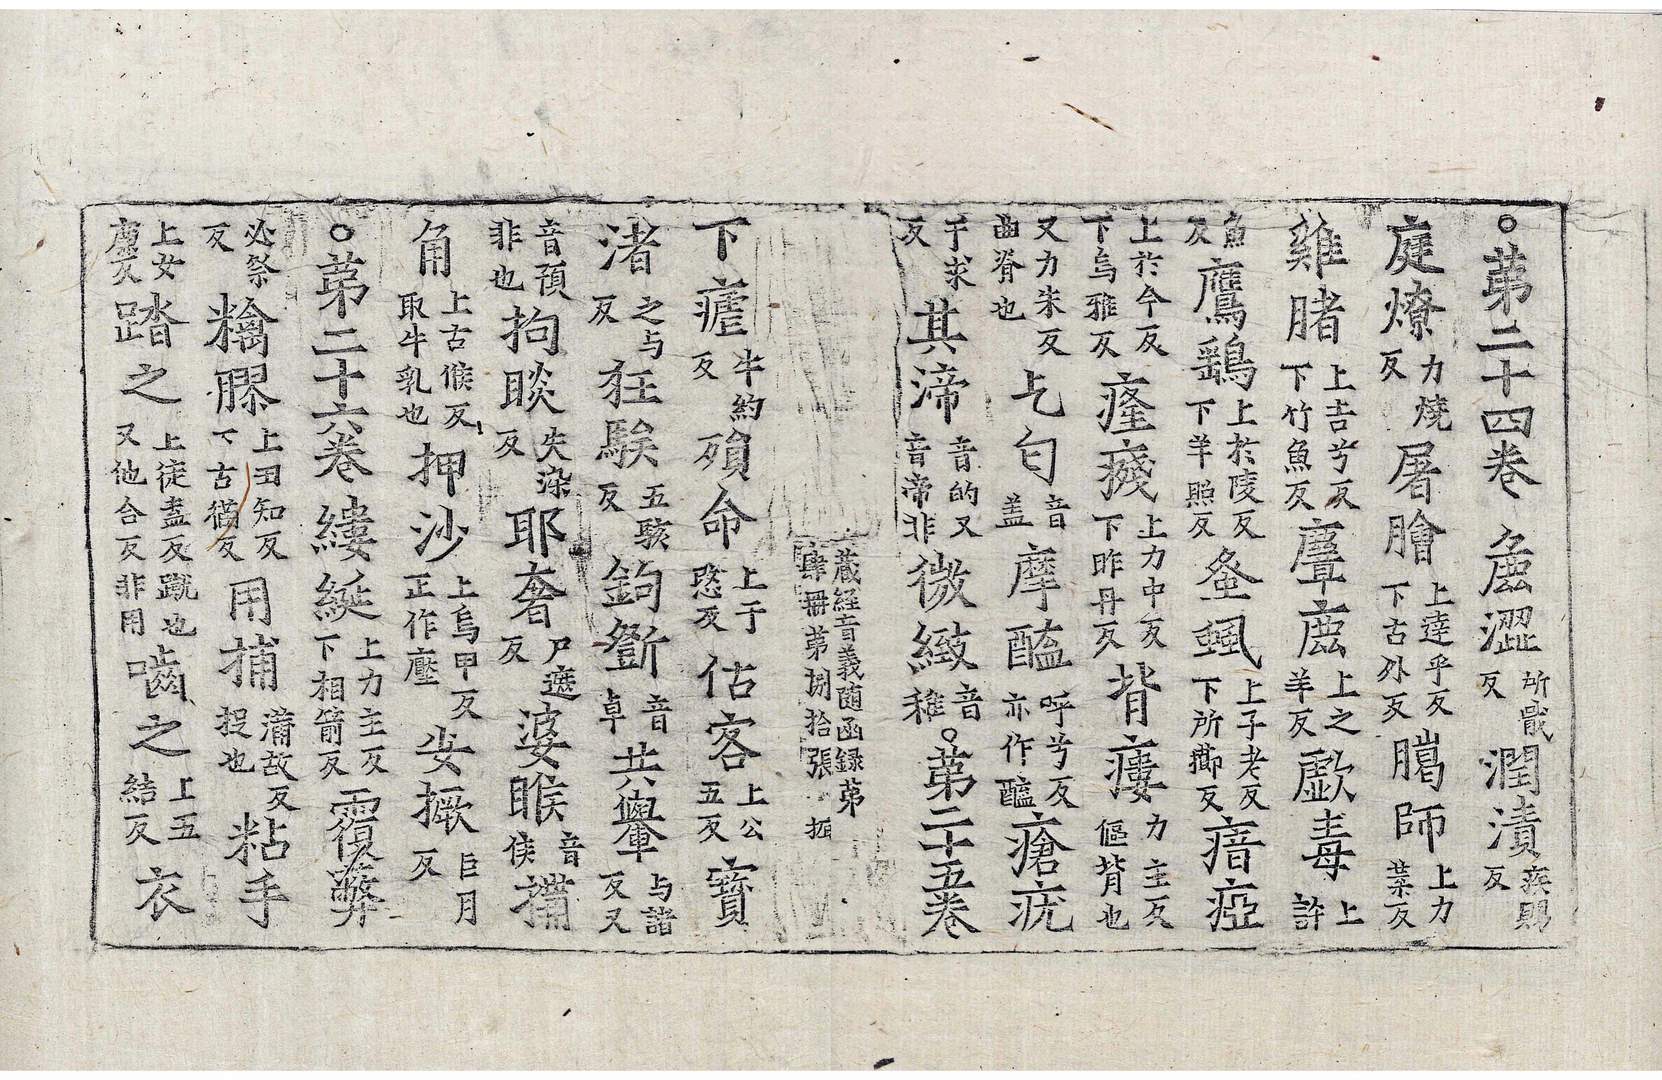 ○第二十四卷麁澀所戢反潤漬疾賜反
庭燎力燒反屠膾上達乎反下古外反臈師上力葉反
雞䐗上吉兮反下竹魚反麞鹿上之羊反歔毒上許
魚反鷹鷂上於陵反下羊照反蚤虱上子老反下所擳反瘖瘂
上於今反下烏雅反癃殘上力中反下昨丹反背瘻力主反傴背也
又力朱反曲脊也乞匂音盖摩醯呼兮反亦作醯瘡疣
于求反其渧音的又音帝非微緻音稚○第二十五卷
藏経音義随函録第肆冊第捌拾張
下瘧牛約反殞命上于愍反估客上公五反寶
渚之与反狂騃五駭反鉤斵音卓共轝与諸反又
音預非也拘睒失染反耶奢尸遮反婆睺音侯㨷
角上古候反取牛乳也押沙上烏甲反正作壓㱕撅巨月反
○第二十六卷縷綖上力主反下相箭反覆弊
必祭反黐膠上丑知反下古猶反用捕蒲故反捉也粘手
上女廉反踏之上徒盍反蹴也又他合反非用嚙之上五結反衣